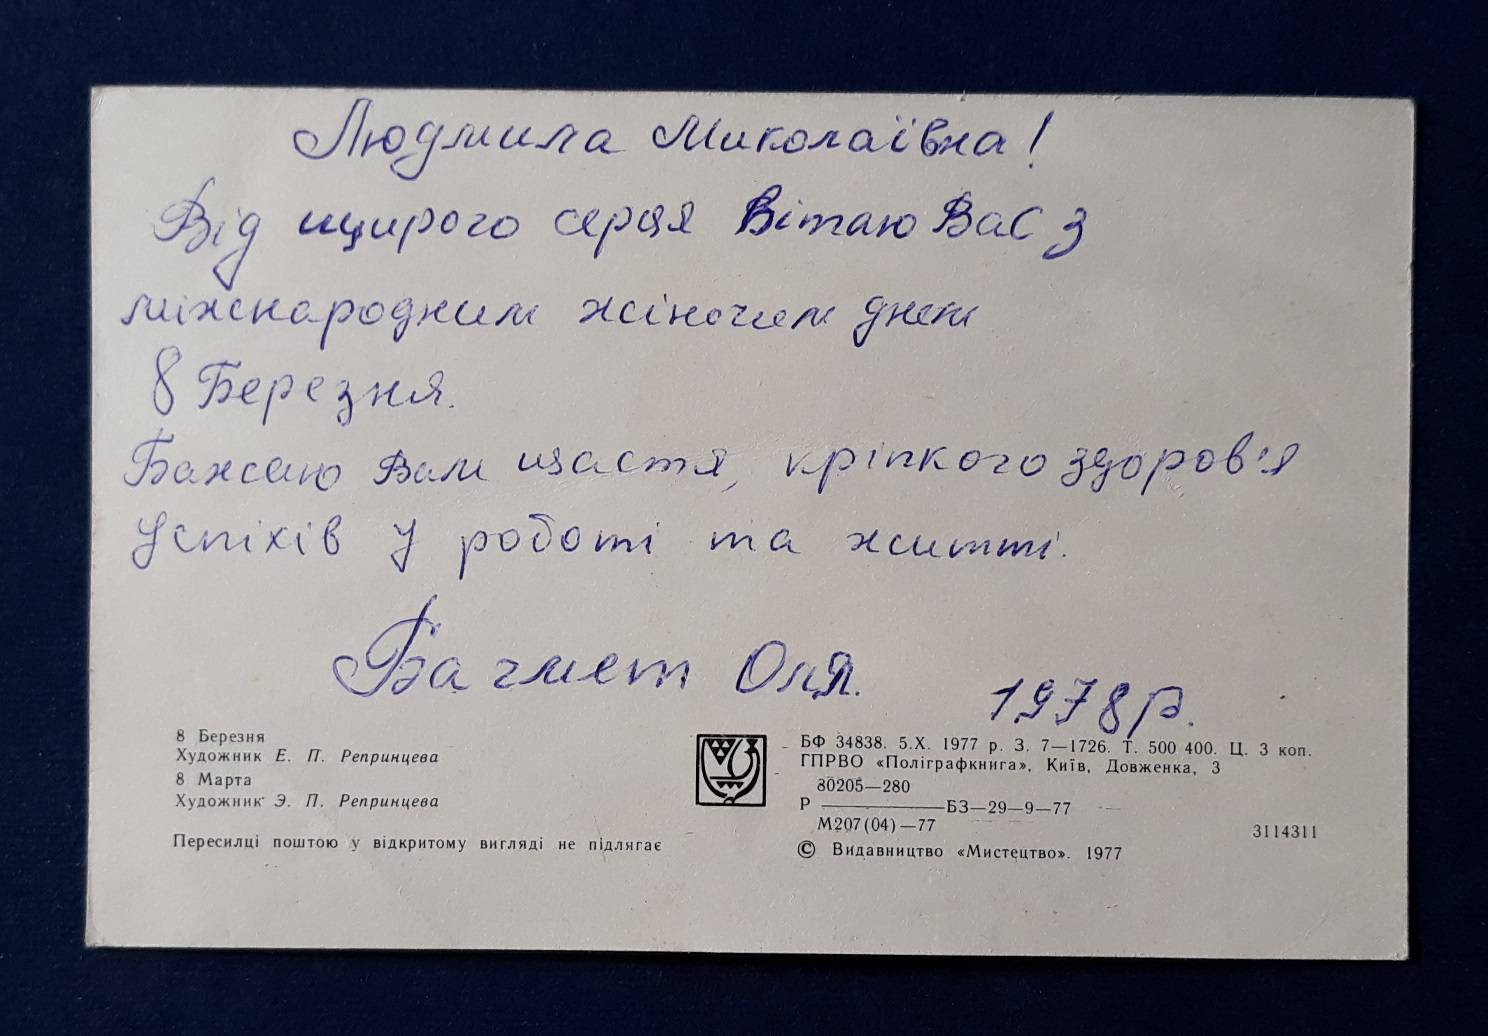 Людмила Миколаївна!
Від щирого серця Вітаю Вас з
міжнародним жіночим днем
8 Березня.
Бажаю Вам щастя, кріпкого здоров'я
Успіхів у роботі та житті.
Багмет Оля.
1978 р.
8 Березня
Художник Е. П. Репринцева
8 Марта
Художник Э. П. Репринцева
Пересилці поштою у відкритому вигляді не підлягає
БФ 34838. 5.X. 1977 р. З. 7—1726. Т. 500 400. Ц. 3 коп.
ГПРВО «Поліграфкнига», Київ, Довженка, 3
80205—280
Р ————— БЗ—29—9—77
М207(04)—77
3114311
© Видавництво «Мистецтво». 1977